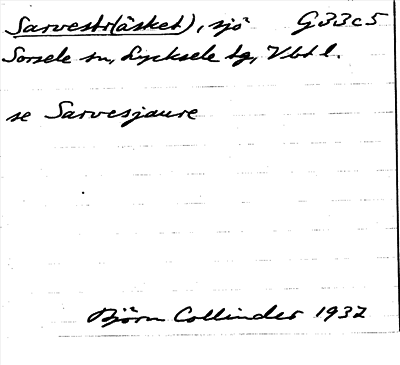 Sarvestr(äsket), sjö G33c5
Sorsele sn, Lycksele tg, Vbtl.
se Sarvesjaure
Björn Collinder 1932